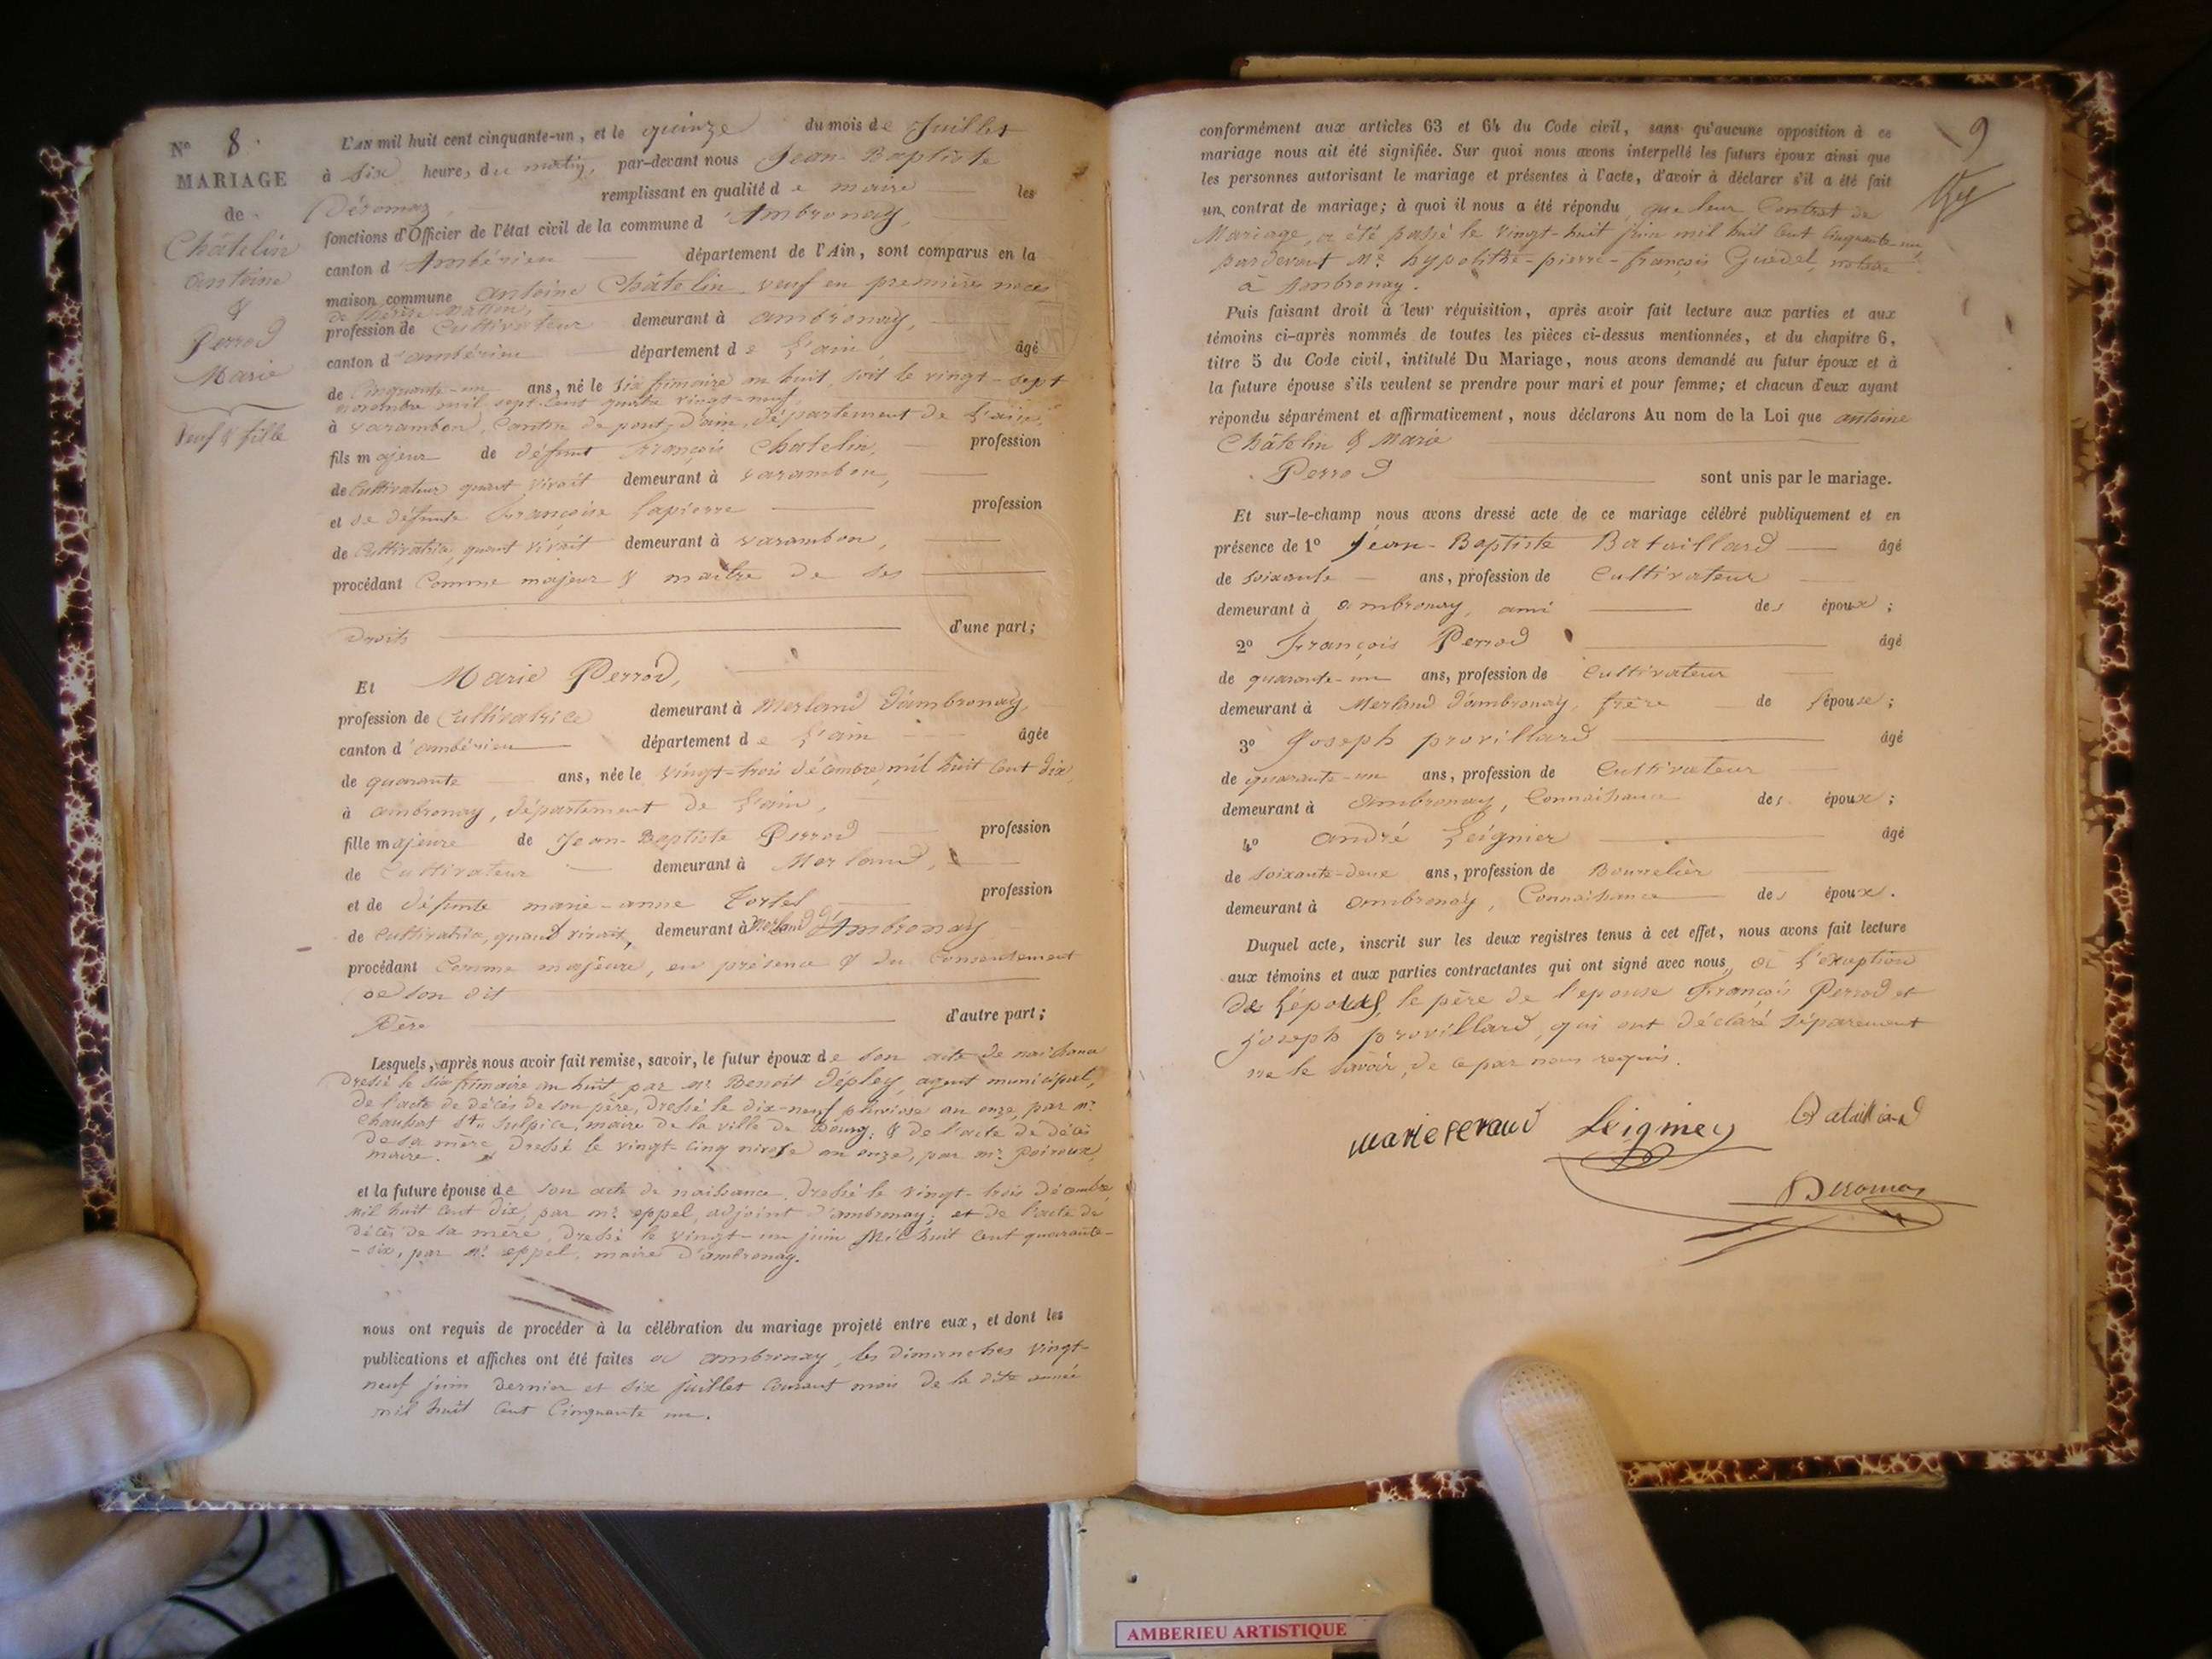 N° 8.
MARIAGE
de
Châtelin
Antoine
&
Perrod
Marie
Veuf & fille
L'AN mil huit cent cinquante-un, et le quinze du mois de Juillet
à six heures du matin, par-devant nous Jean-Baptiste
Déromas remplissant en qualité de maire les
fonctions d'Officier de l'état civil de la commune d'Ambronay,
canton d'Ambérieu département de l'Ain, sont comparus en la
maison commune Antoine Châtelin, veuf en premières noces
de
profession de Cultivateur demeurant à ambronay,
canton d'ambérieu département de l'ain âgé
de Cinquante-un ans, né le six frimaire an huit, soit le vingt-sept
novembre mil sept cent quatre vingt-neuf,
à varambon, Canton de pont-d'ain, département de L'ain,
fils majeur de défunt François Chatelin, profession
de Cultivateur quant vivait demeurant à varambon,
et de défunte Françoise Lapierre profession
de Cultivatrice, quant vivait demeurant à varambon,
procédant Comme majeur & maître de ses
Droits d'une part;
Et Marie Perrod,
profession de Cultivatrice demeurant à Merland d'ambronay,
canton d'ambérieu département de l'ain âgée
de quarante ans, née le vingt-trois décembre mil huit Cent dix
à ambronay, département de L'ain,
fille majeure de Jean-Baptiste Perrod profession
de Cultivateur demeurant à Merland,
et de défunte marie-anne profession
de Cultivatrice, quand vivait, demeurant à Merland d'Ambronay
procédant Comme majeure, en présence & du Consentement
de son dit
Père d'autre part;
Lesquels, après nous avoir fait remise, savoir, le futur époux de son acte de naissance
Dressé le six frimaire an huit par Mr Benoit Dépley, agent municipal,
de l'acte de décès de son père, Dressé le dix-neuf pluviose an onze, par Mr
Chaubot sulpice, maire de la ville de Bourg; & de l'acte de décès
de sa mère Dressé le vingt-Cinq nivose an onze, par Mr Poiroux,
maire.
et la future épouse de son acte de naissance, dressé le vingt-trois décembre
mil huit cent dix, par Mr eppel, adjoint d'ambronay; et de l'acte de
décès de sa mère, Dressé le vingt-un juin Mil huit Cent quarante-
-six, par Mr eppel, maire d'ambronay.
nous ont requis de procéder à la célébration du mariage projeté entre eux, et dont les
publications et affiches ont été faites à ambronay, les dimanches vingt-
neuf juin dernier et six juillet Courant mois de la dite année
mil huit Cent Cinquante un.
9
conformément aux articles 63 et 64 du Code civil, sans qu'aucune opposition à ce
mariage nous ait été signifiée. Sur quoi nous avons interpellé les futurs époux ainsi que
les personnes autorisant le mariage et présentes à l'acte, d'avoir à déclarer s'il a été fait
un contrat de mariage; à quoi il nous a été répondu que leur Contrat de
Mariage, a été passé le vingt-huit juin mil huit Cent Cinquante un,
pardevant Me hypolithe-pierre-françois Guedel, notaire
à Ambronay.
Puis faisant droit à leur réquisition, après avoir fait lecture aux parties et aux
témoins ci-après nommés de toutes les pièces ci-dessus mentionnées, et du chapitre 6,
titre 5 du Code civil, intitulé Du Mariage, nous avons demandé au futur époux et à
la future épouse s'ils veulent se prendre pour mari et pour femme; et chacun d'eux ayant
répondu séparément et affirmativement, nous déclarons Au nom de la Loi que antoine
Châtelin & Marie
Perrod sont unis par le mariage.
Et sur-le-champ nous avons dressé acte de ce mariage célébré publiquement et en
présence de 1° Jean-Baptiste Bataillard âgé
de soixante ans, profession de Cultivateur
demeurant à ambronay, ami des époux;
2° François Perrod âgé
de quarante-un ans, profession de Cultivateur
demeurant à Merland d'ambronay, frère de l'épouse;
3° Joseph provillard âgé
de quarante-un ans, profession de Cultivateur
demeurant à Ambronay, Connaissance des époux;
4° André Leignier âgé
de soixante-deux ans, profession de Bourrelier
demeurant à Ambronay, Connaissance des époux.
Duquel acte, inscrit sur les deux registres tenus à cet effet, nous avons fait lecture
aux témoins et aux parties contractantes qui ont signé avec nous, à L'exception
de L'époux, le père de l'epouse François Perrod et
Joseph provillard, qui ont déclaré séparement
ne le savoir, de ce par nous requis.
Marie peraud Leigniey Bataillard
Deromas
AMBERIEU ARTISTIQUE